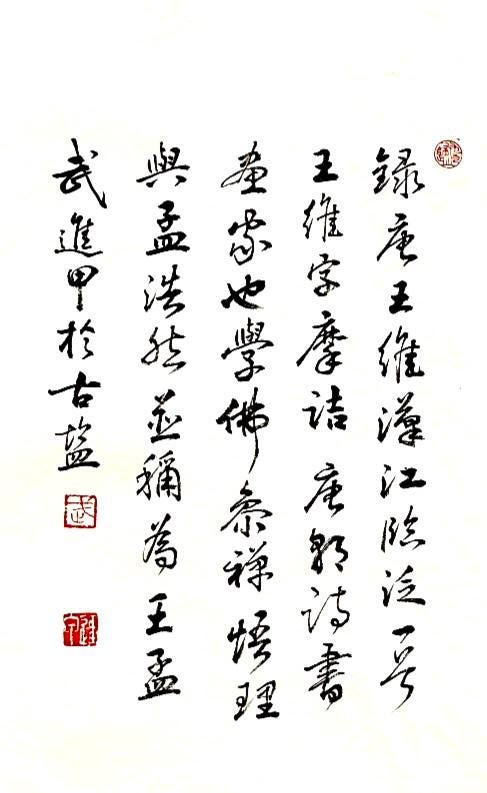 録唐王維漢江臨泛一首
王維字摩詰唐朝詩書
畫家也學佛參禪悟理
與孟浩然並稱為王孟
武進甲於古鹽
武